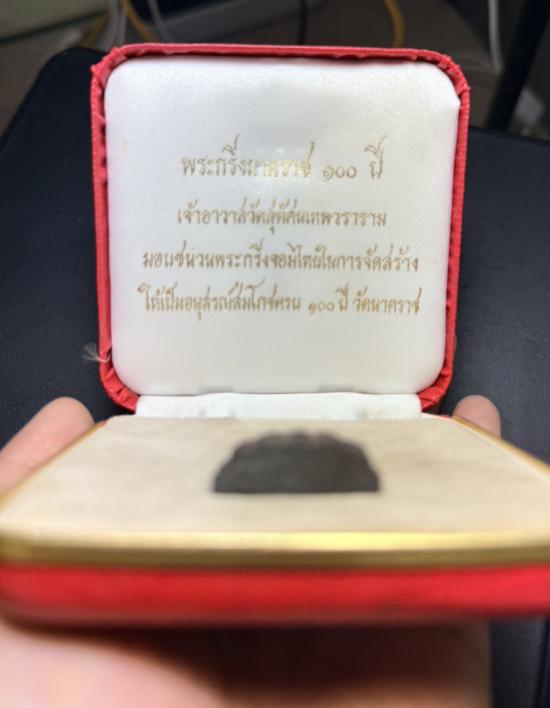 พระกริ่งนาคราช ๑๐๐ ปี
เจ้าอาวาสวัดสุทัศนเทพวราราม
มอบชนวนพระกริ่งของไทยในการจัดสร้าง
ให้เป็นอนุสรณ์สมโภชครบ ๑๐๐ ปี วัดนาคราช